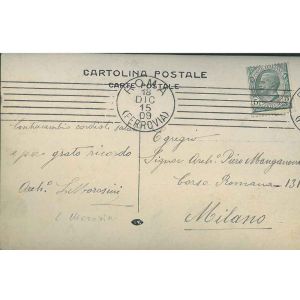 CARTOLINA POSTALE
CARTE POSTALE
ROMA
18
DIC
15
09
(FERROVIA)
Contraccambio cordiali saluti
e per grato ricordo
Arch.º L. Morosini
L. Morosin
Egregio
Signor Arch.º Piero Manganoni
Corso Romana - 131
Milano